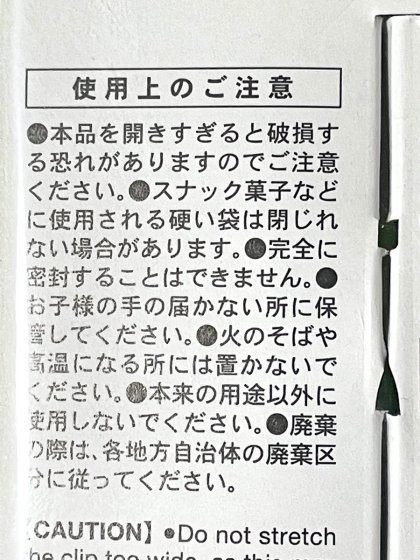 使用上のご注意
●本品を開きすぎると破損す
る恐れがありますのでご注意
ください。●スナック菓子など
に使用される硬い袋は閉じれ
ない場合があります。●完全に
密封することはできません。●
お子様の手の届かない所に保
管してください。●火のそばや
高温になる所には置かないで
ください。●本来の用途以外に
使用しないでください。●廃棄
の際は、各地方自治体の廃棄区
分に従ってください。
【CAUTION】●Do not stretch
the clip too wide, as this may